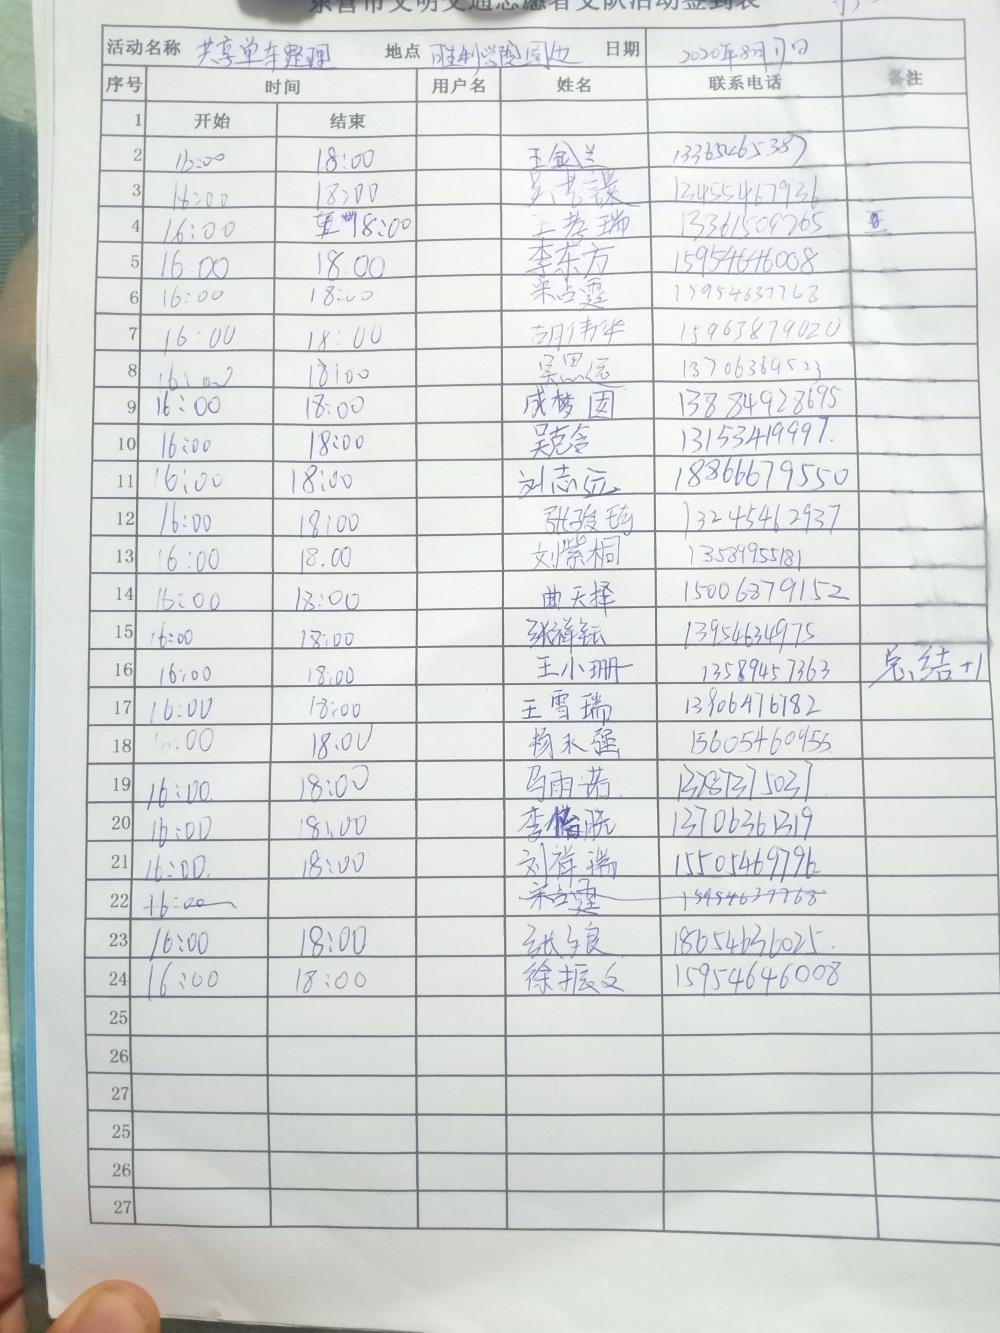 东营市文明交通志愿者支队活动签到表
活动名称 共享单车整理 地点 胜利学院周边 日期 2020年8月17日
序号 时间 用户名 姓名 联系电话 备注
1 开始 结束
2 16:00 18:00 王金兰 13365465387
3 16:00 18:00 13455467936
4 16:00 18:00 王若瑞 13361509765
5 16:00 18:00 李东方 15954646008
6 16:00 18:00 宋占霆 15954637768
7 16:00 18:00 胡伟华 15963879020
8 16:00 18:00 吴思远 13706369523
9 16:00 18:00 成梦园 13884928695
10 16:00 18:00 吴克含 13153419997.
11 16:00 18:00 刘志远 18866679550
12 16:00 18:00 13245462937
13 16:00 18.00 刘紫桐 13589955181
14 16:00 18:00 曲天择 15006879152
15 16:00 18:00 张祥钰 13954634975
16 16:00 18:00 王小珊 13589457363 总结+1
17 16:00 18:00 王雪瑞 13906476782
18 16:00 18:00 杨永强 15605460955
19 16:00 18:00 马雨诺 13787375037
20 16:00 18:00 13706361319
21 16:00. 18:00 刘祥瑞 15505469796
22 16:00 宋占霆 15954637768
23 16:00 18:00 18654636025.
24 16:00 18:00 徐振文 15954646008
25
26
27
25
26
27